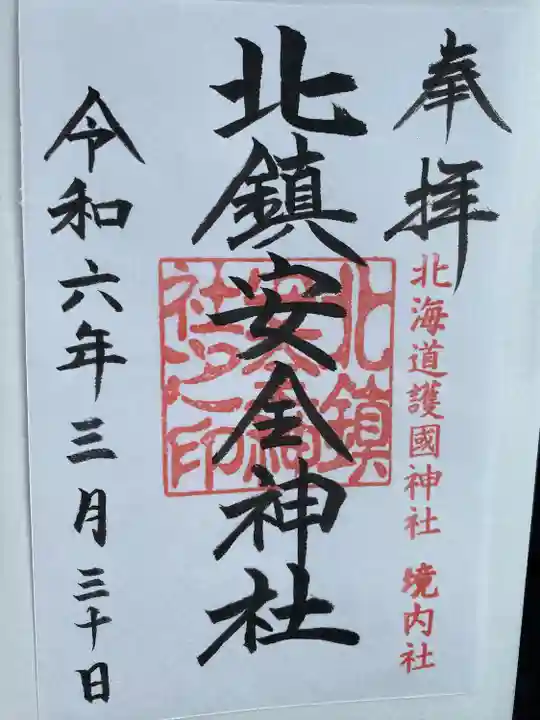 奉拝
北海道護國神社 境内社
北鎮安全神社
北鎮
安全神
社之印
令和六年三月三十日